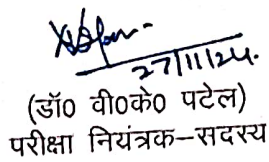 27/11/24.
(डॉ0 वी0के0 पटेल)
परीक्षा नियंत्रक–सदस्य